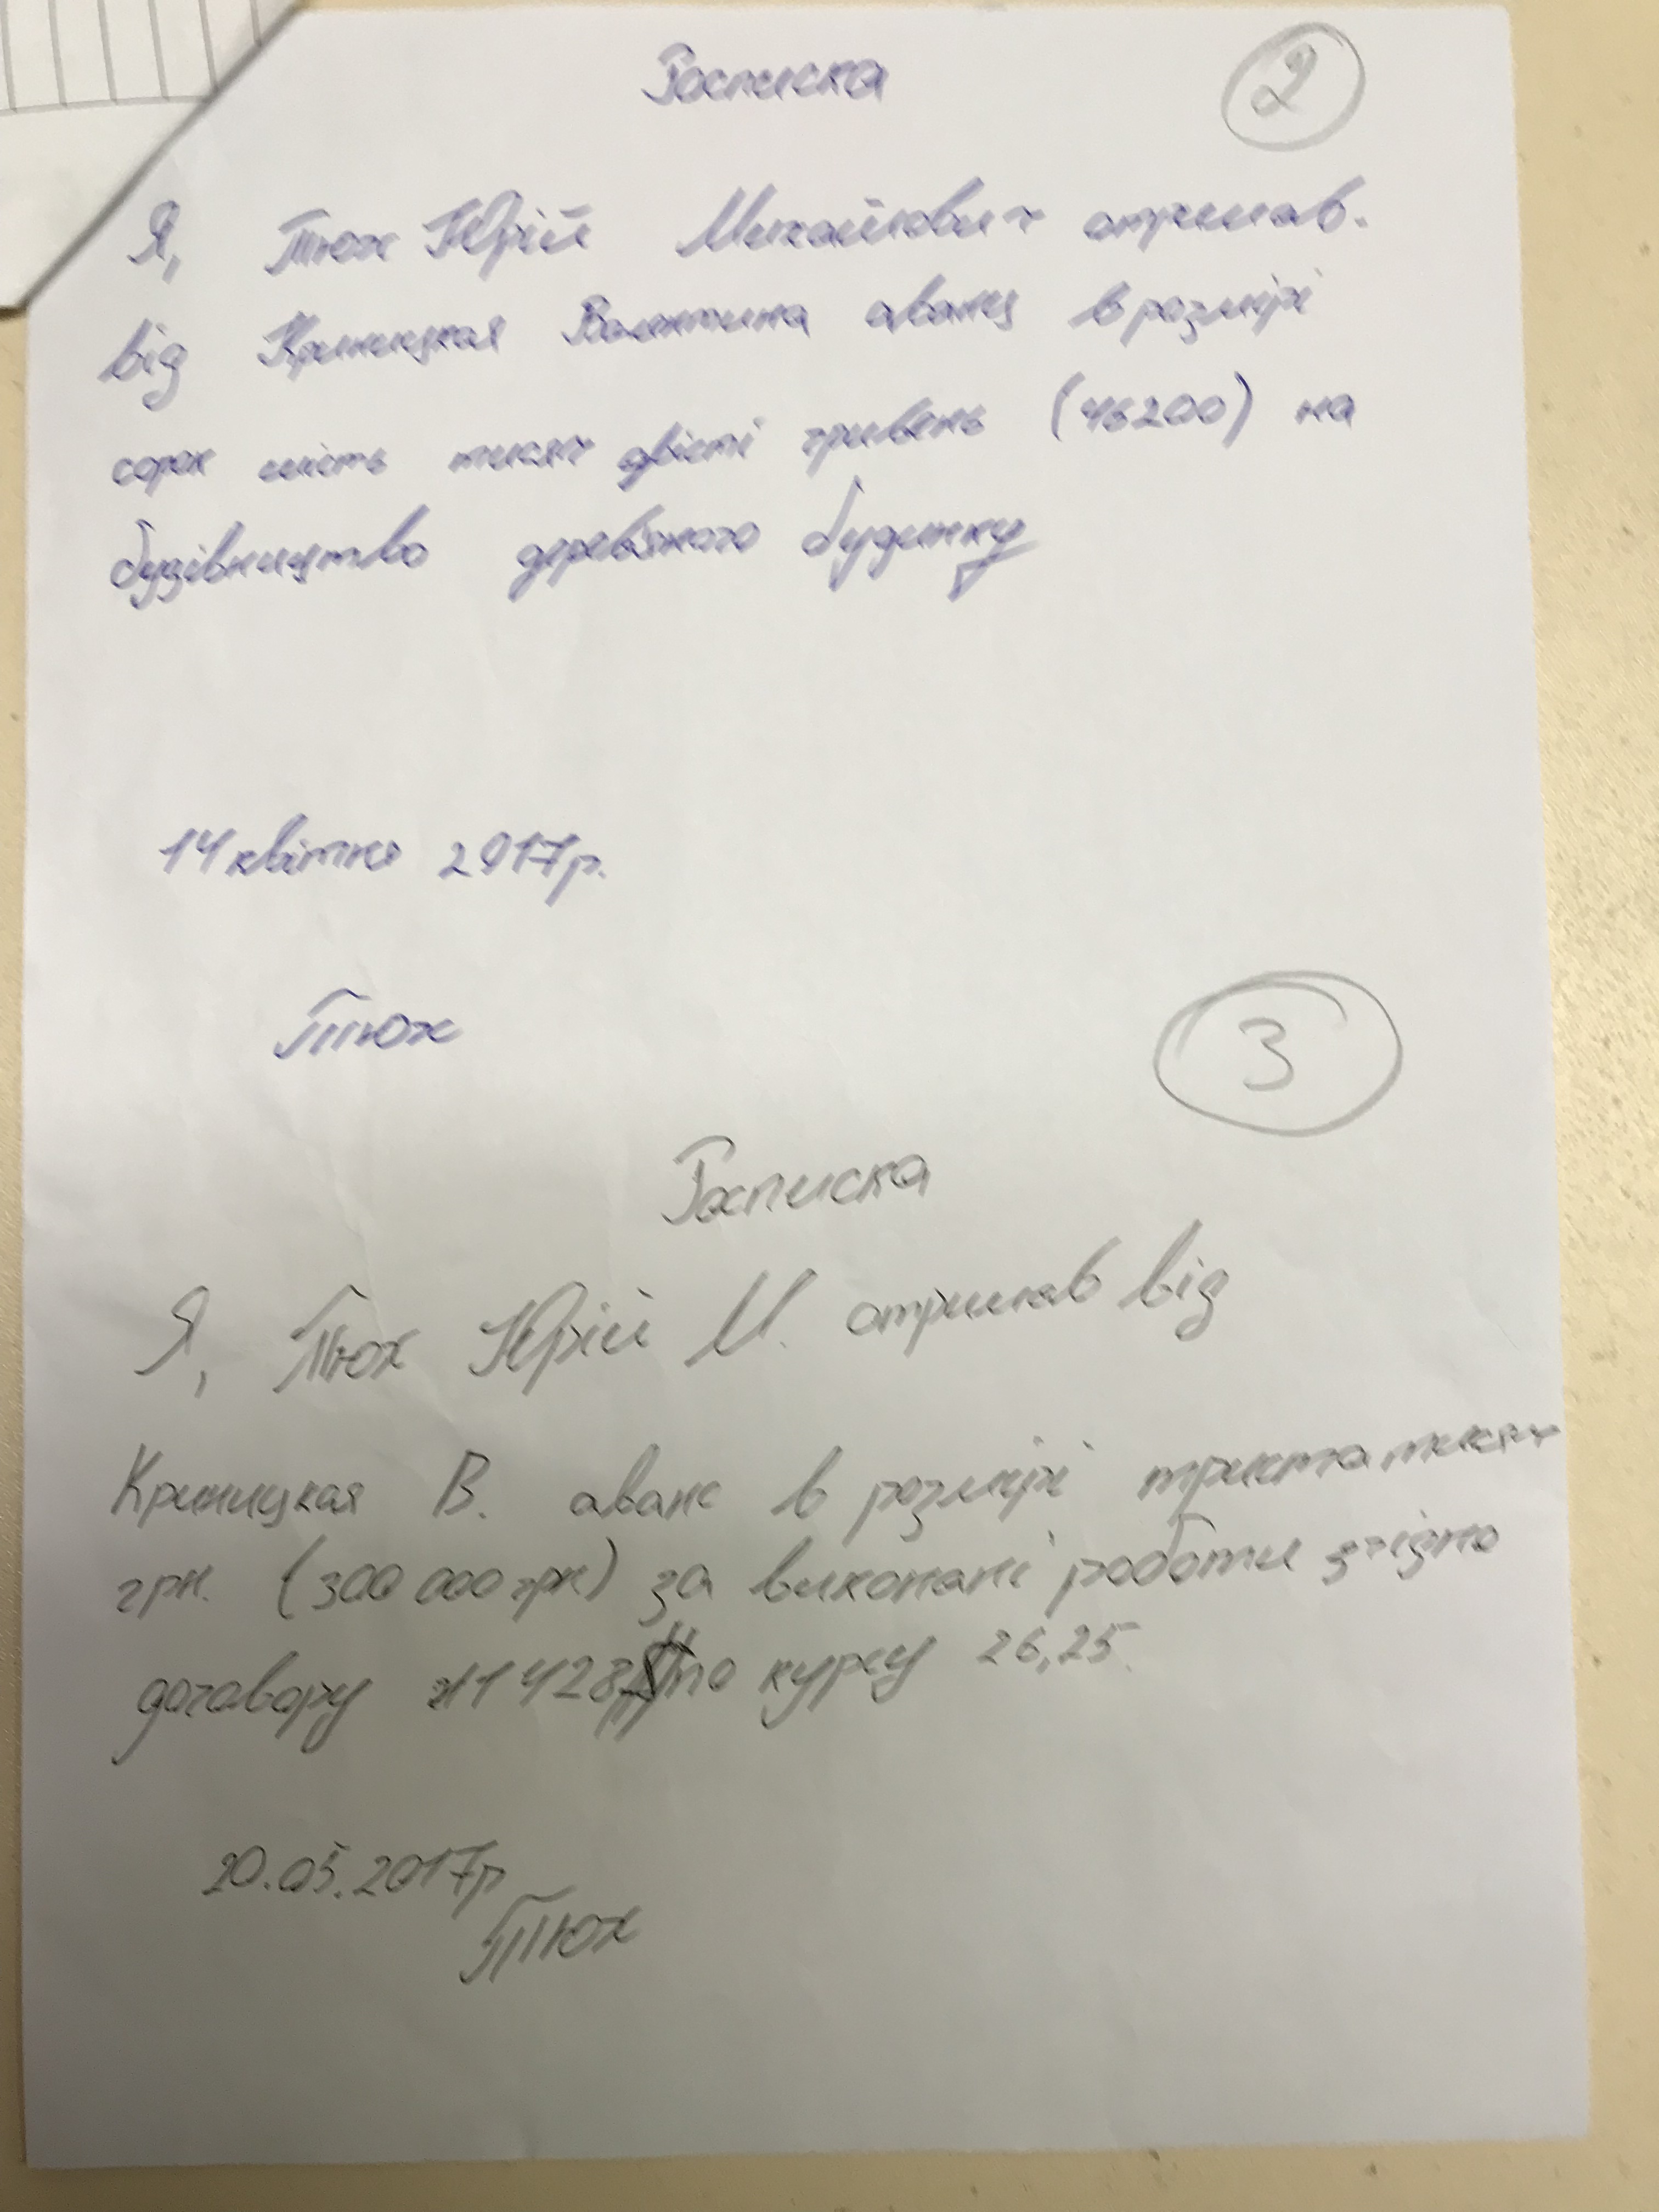 Расписка
2
Я, Тюх Юрій Михайлович отримав.
від Криницкая Валентина аванц в розмірі
сорок шість тисяч двісті гривень (46200) на
будівництво дерев'яного будинку
14 квітня 2017р.
Тюх
3
Расписка
Я, Тюх Юрій М. отримав від
Криницкая В. аванс в розмірі триста тисяч
грн. (300 000 грн) за виконані роботи згідно
договору 11428$ по курсу 26,25.
20.05.2017р
Тюх